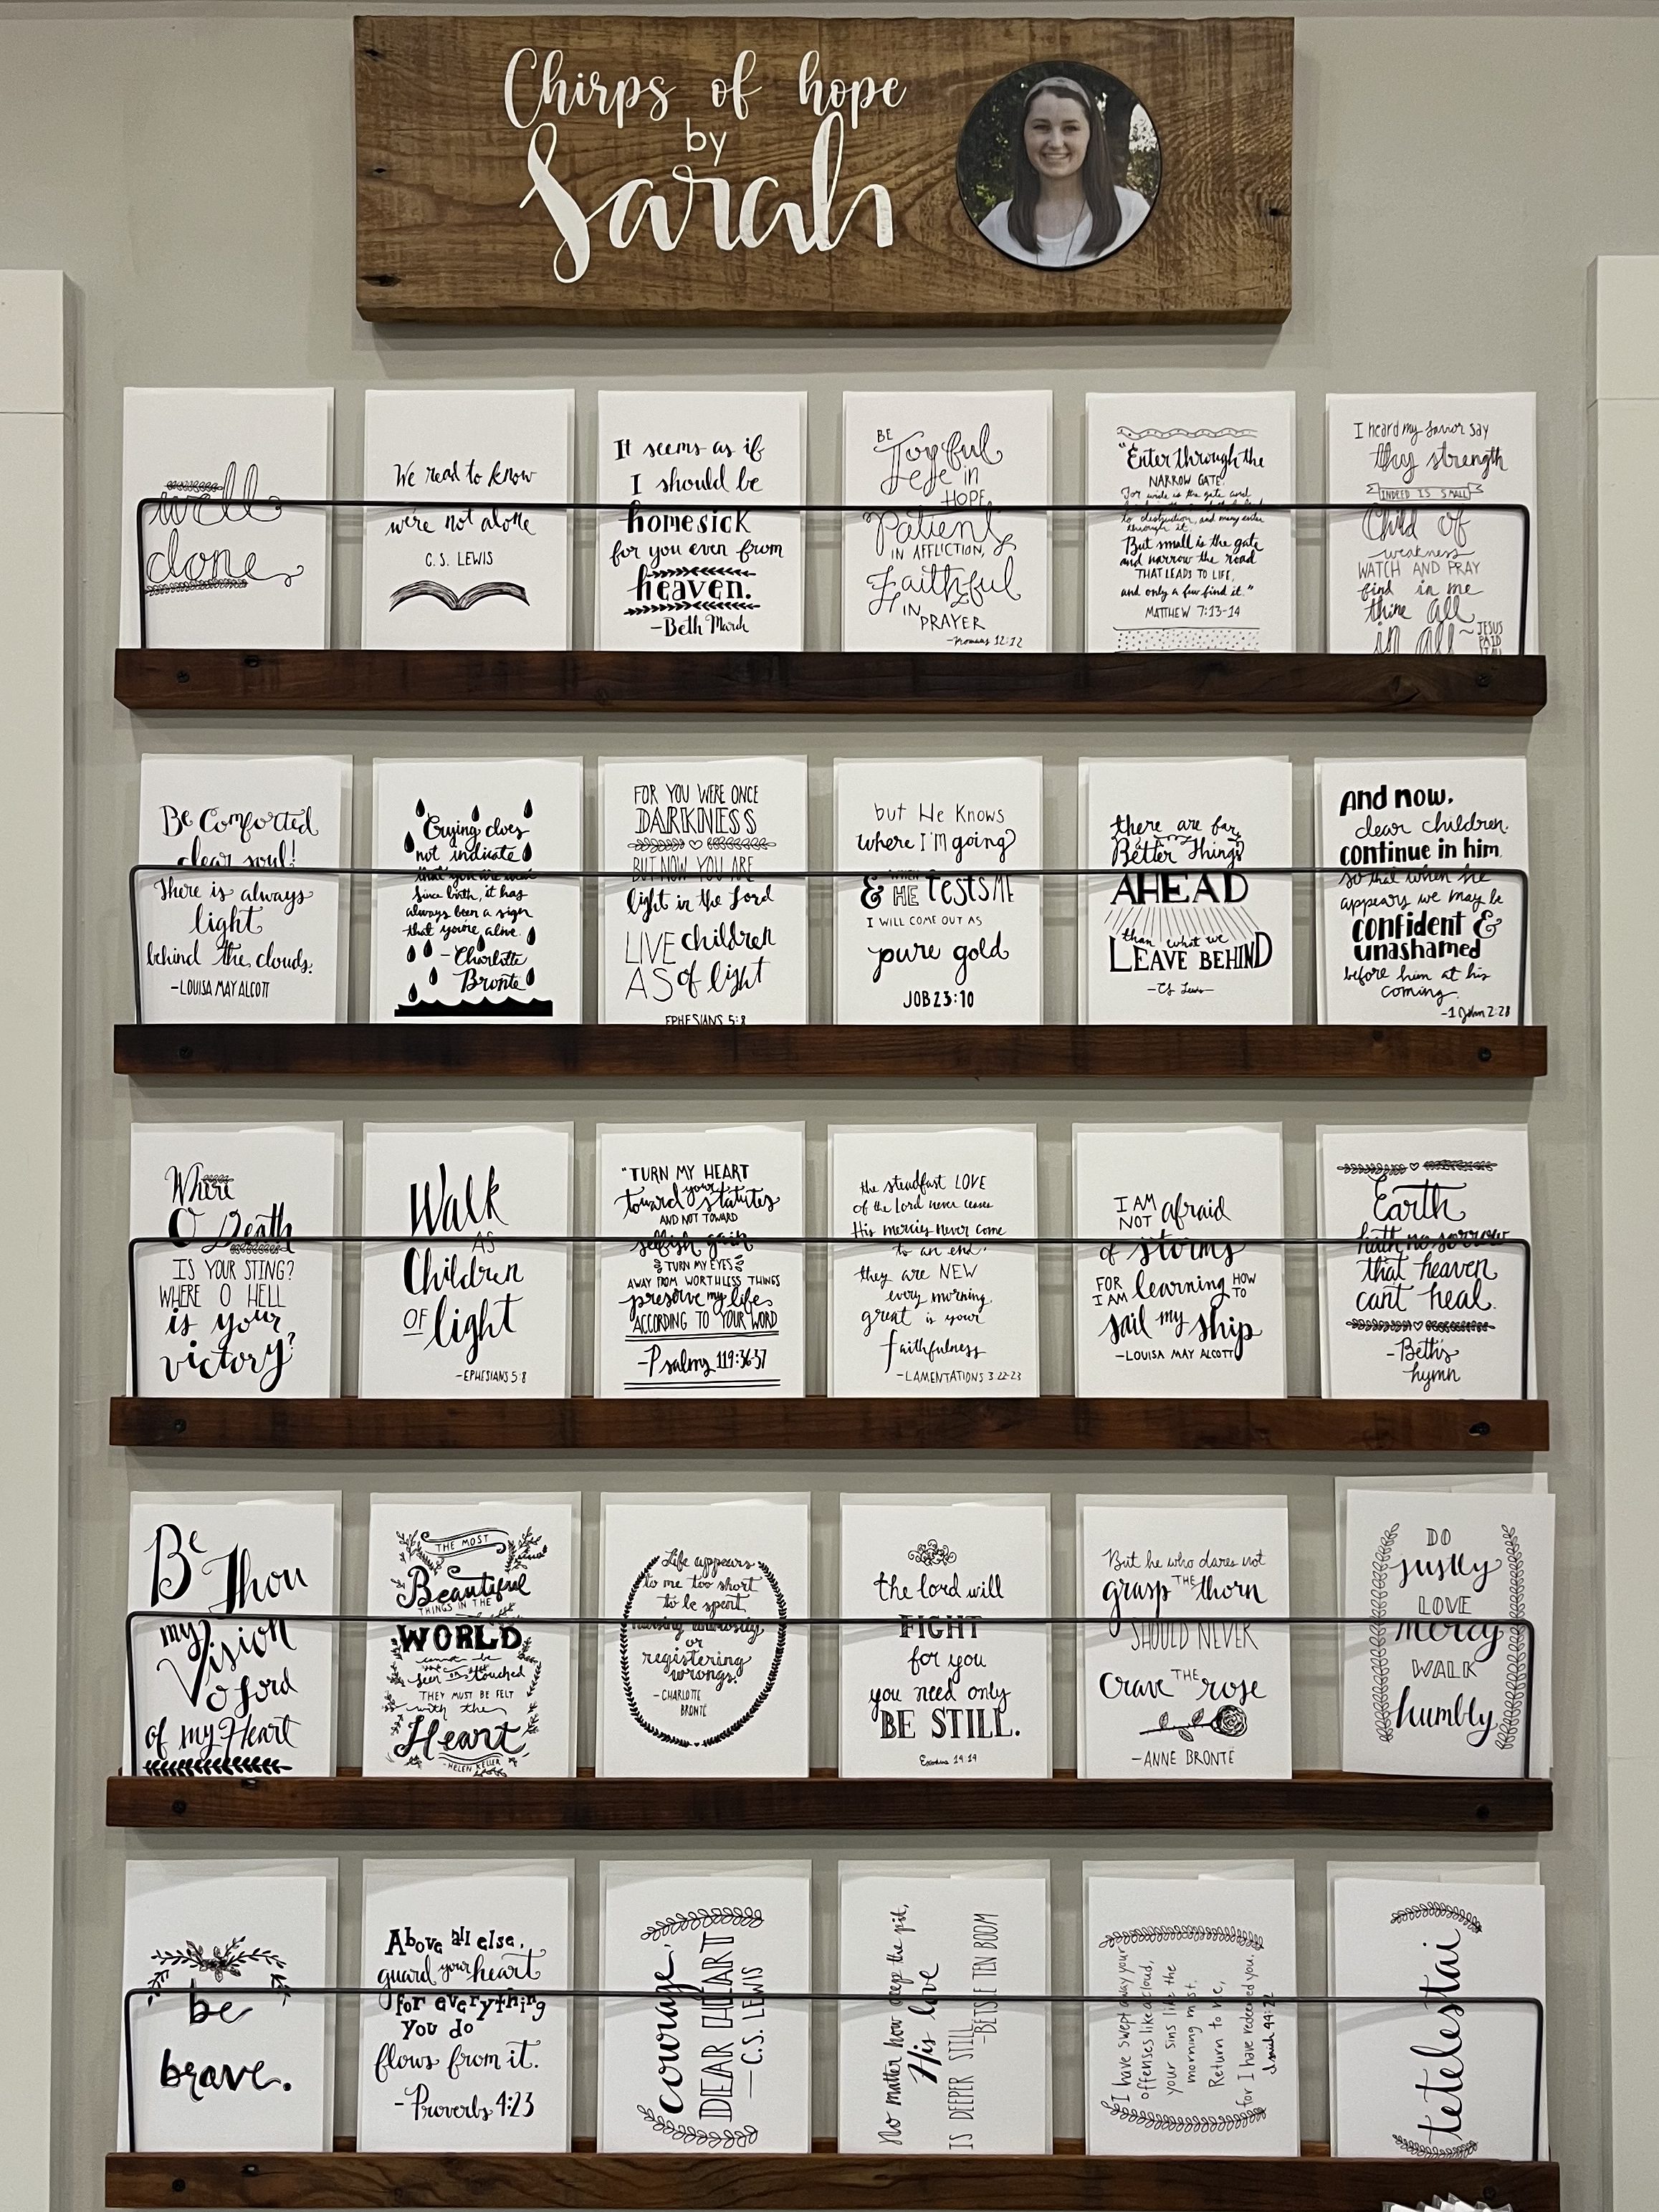 Chirps of hope
by
Sarah
well
done
We read to know
we're not alone
C.S. LEWIS
It seems as if
I should be
homesick
for you even from
heaven.
-Beth March
BE
Joyful
IN
HOPE,
Patient
IN AFFLICTION,
Faithful
IN
PRAYER
-Romans 12:12
"Enter through the
NARROW GATE.
For wide is the gate and
to destruction, and many enter
through it.
But small is the gate
and narrow the road
THAT LEADS TO LIFE,
and only a few find it."
MATTHEW 7:13-14
I heard my savior say
thy strength
INDEED IS SMALL
Child of
weakness
WATCH AND PRAY
find in me
thine all
in all
~JESUS
PAID
IT ALL
Be Comforted
dear soul!
There is always
light
behind the clouds.
-LOUISA MAY ALCOTT
Crying does
not indicate
that you are weak
Since birth, it has
always been a sign
that you're alive.
-Charlotte
Bronte
FOR YOU WERE ONCE
DARKNESS
BUT NOW YOU ARE
light in the Lord
LIVE children
AS of light
EPHESIANS 5:8
but He Knows
where I'm going
& WHEN HE tests ME
I WILL COME OUT AS
pure gold
JOB 23:10
there are far,
Better Things
AHEAD
than what we
LEAVE BEHIND
-CS Lewis-
And now,
dear children,
continue in him,
so that when he
appears we may be
confident &
unashamed
before him at his
coming.
-1 John 2:28
Where
O Death
IS YOUR STING?
WHERE O HELL
is your
victory?
Walk
AS
Children
OF light
-EPHESIANS 5:8
"TURN MY HEART
toward your statutes
AND NOT TOWARD
selfish gain
TURN MY EYES
AWAY FROM WORTHLESS THINGS
preserve my life
ACCORDING TO YOUR WORD
-Psalms 119:36-37
the steadfast LOVE
of the Lord never ceases
His mercies never come
to an end,
they are NEW
every morning,
great is your
faithfulness
-LAMENTATIONS 3:22-23
I AM NOT afraid
of storms
FOR I AM learning HOW TO
sail my ship
-LOUISA MAY ALCOTT
Earth
hath no sorrow
that heaven
can't heal.
-Beth's
hymn
Be Thou
my Vision
O Lord
of my Heart
THE MOST
Beautiful
THINGS IN THE
WORLD
cannot be
seen or touched
THEY MUST BE FELT
with the
Heart
-HELEN KELLER
Life appears
to me too short
to be spent
nursing animosity
or
registering
wrongs.
-CHARLOTTE
BRONTË
the lord will
FIGHT
for you
you need only
BE STILL.
Exodus 14:14
But he who dares not
grasp THE thorn
SHOULD NEVER
Crave THE rose
-ANNE BRONTË
DO
justly
LOVE
mercy
WALK
humbly
be
brave.
Above all else,
guard your heart
for everything
you do
flows from it.
-Proverbs 4:23
courage,
DEAR HEART
—C.S. LEWIS
No matter how deep the pit,
His love
IS DEEPER STILL
-BETSIE TEN BOOM
I have swept away your
offenses like a cloud,
your sins like the
morning mist.
Return to me,
for I have redeemed you.
Isaiah 44:22
tetelestai